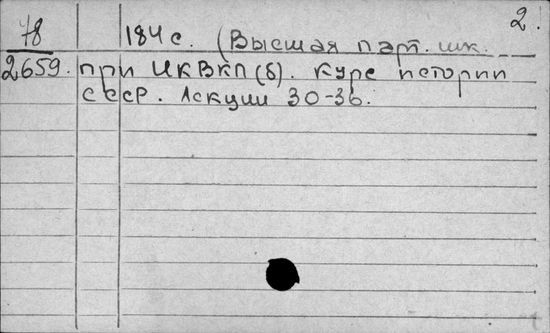 2.
78 184 с. (Высшая парт. шк.
2659. при ЦК ВКП(б). Курс истории
СССР. Лекции 30-36.